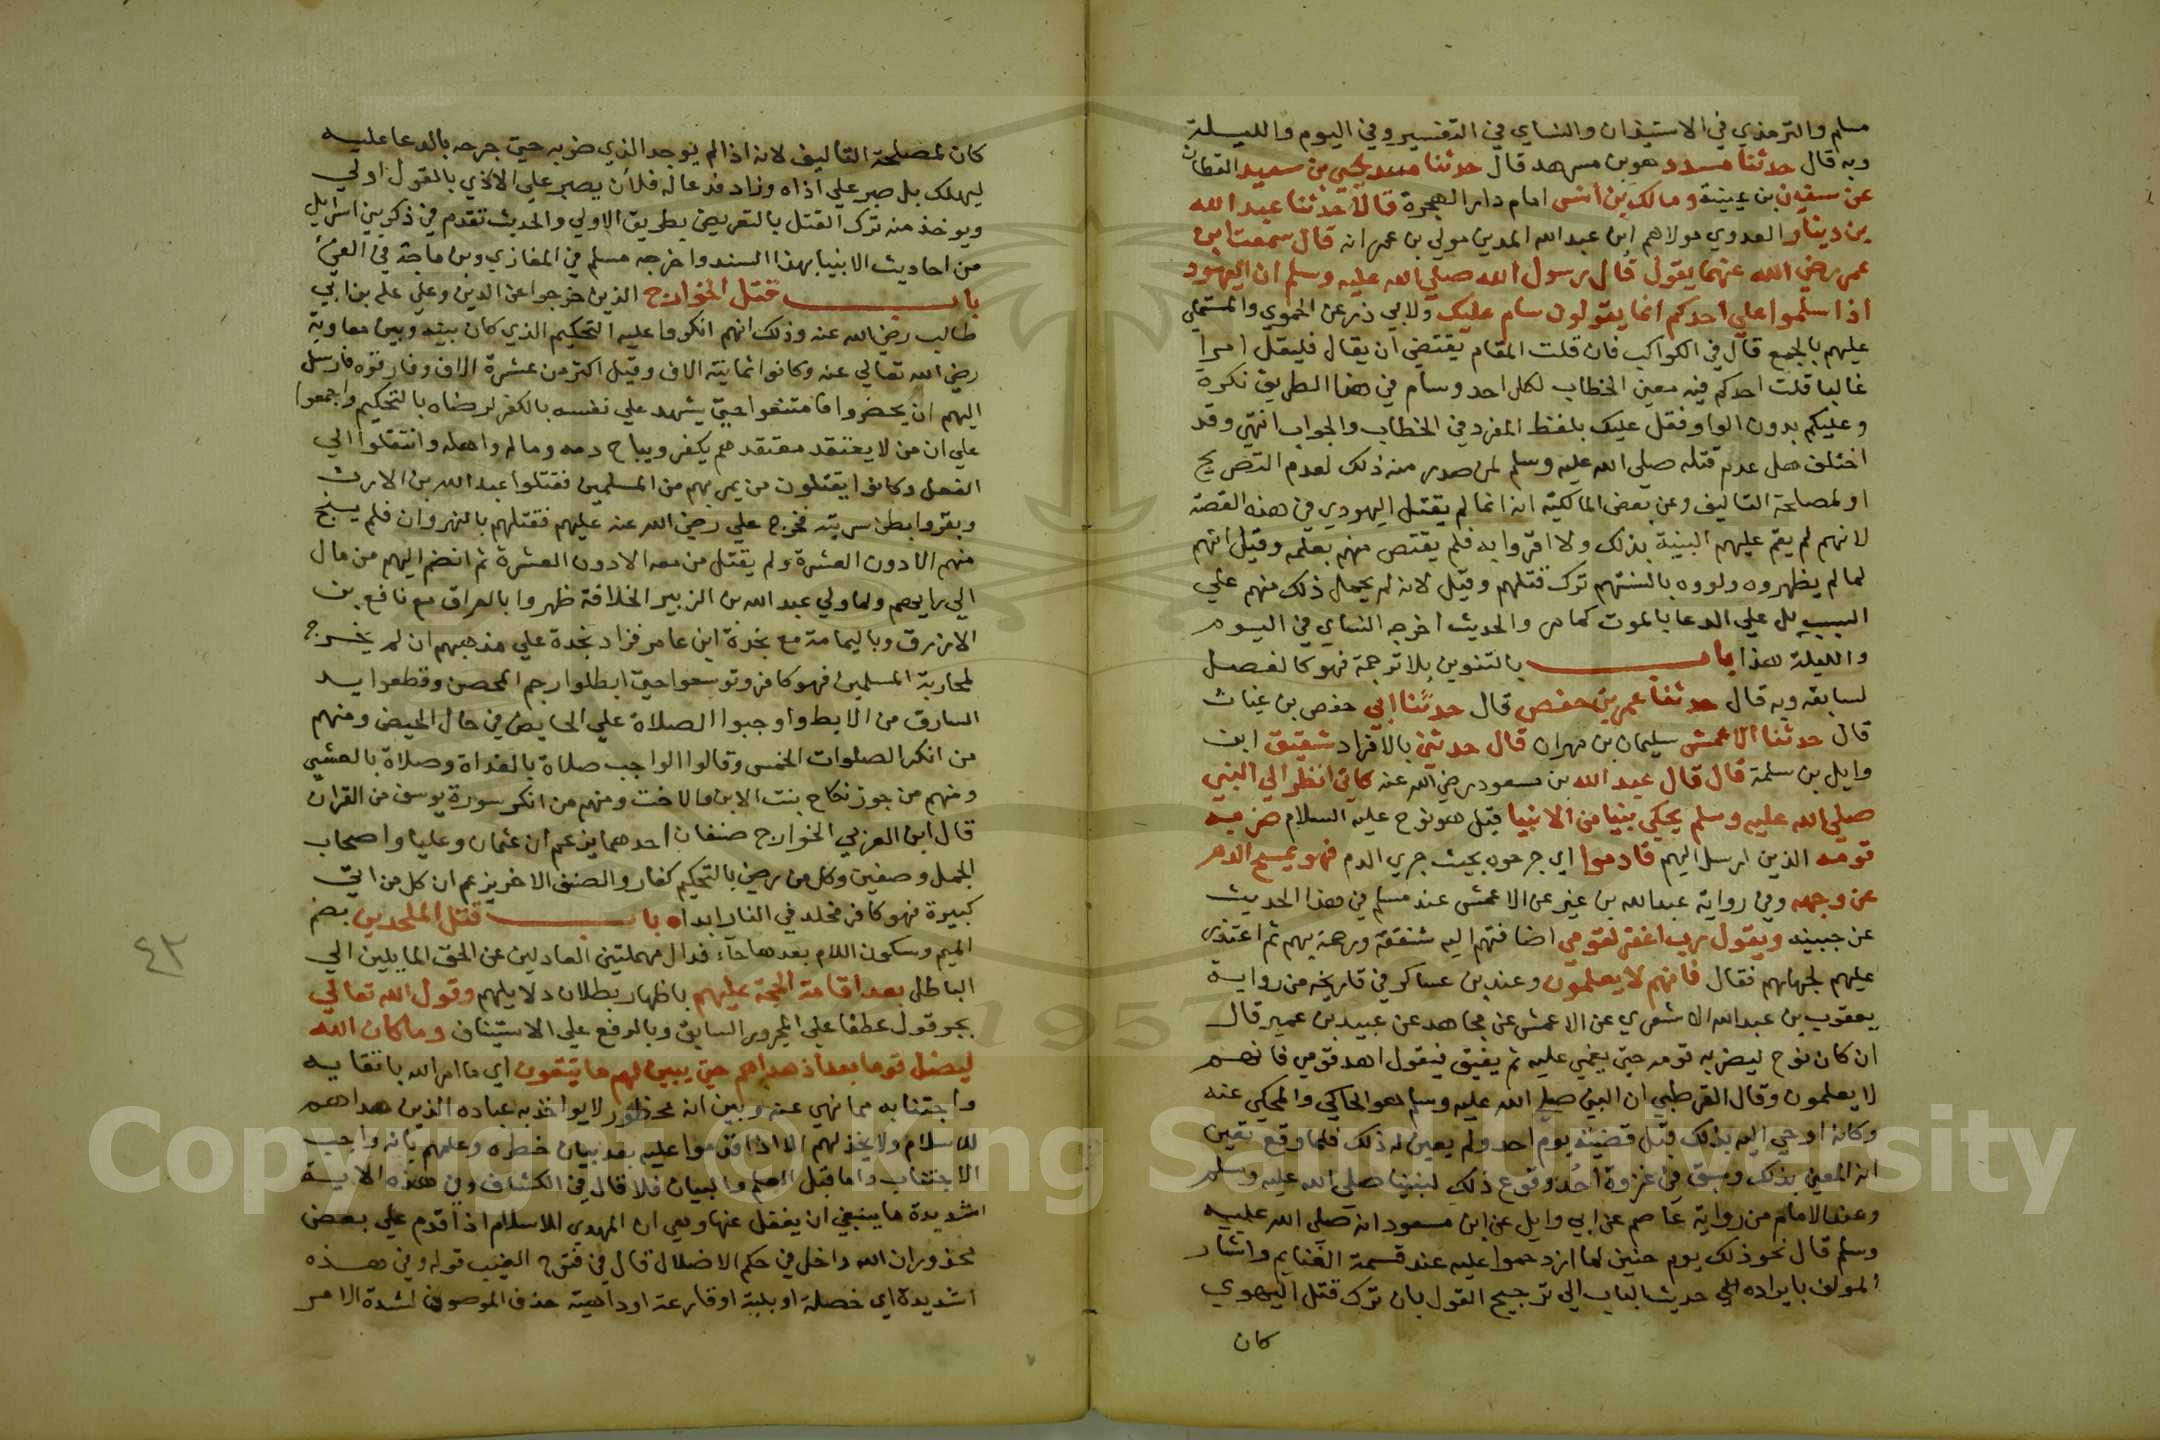 مسلم والترمذي في الاستيذان والنساي في التفسير وفي اليوم والليلة
وبه قال حدثنا مسدد هو بن مسرهد قال حدثنا يحيى بن سعيد القطان
عن سفين بن عيينة ومالك بن انس امام دار الهجرة قالا حدثنا عبد الله
بن دينار العدوي مولاهم ابن عبد الله المدين مولي بن عمر انه قال سمعت ابن
عمر رضي الله عنهما يقول قال رسول الله صلي الله عليه وسلم ان اليهود
اذا سلموا علي احدكم انما يقولون سام عليك ولابي ذر عن الحموي والمستملي
عليهم بالجمع قال في الكواكب فان قلت المقام يقتضي ان يقال فليقل امرا
غايبا قلت احدكم فيه معين الخطاب لكل احد وسام في هذا الطريق نكرة
وعليكم بدون الواو فقل عليك بلفظ المفرد في الخطاب والجواب انتهي وقد
اختلف هل عدم قتله صلي الله عليه وسلم لمن صدر منه ذلك لعدم التصريح
او لمصلحة التاليف وعن بعض المالكية انه انما لم يقتل اليهودي في هذه القصة
لانهم لم يقم عليهم البينة بذلك ولا اقروا به فلم يقتص منهم بعلمه وقيل انهم
لما لم يظهروه ولووه بالسنتهم ترك قتلهم وقيل لانه لم يحمل ذلك منهم علي
السب بل علي الدعا بالموت كما مر والحديث اخرجه النساي في اليوم
والليلة هذا باب بالتنوين بلا ترجمة فهو كالفصل
لسابقه وبه قال حدثنا عمر بن حفص قال حدثنا ابي حفص بن غياث
قال حدثنا الاعمش سليمان بن مهران قال حدثني بالافراد شقيق ابن
وايل بن سلمة قال قال عبد الله بن مسعود رضي الله عنه كاني انظر الي النبي
صلي الله عليه وسلم يحكي نبيا من الانبيا قيل هو نوح عليه السلام ضربه
قومه الذين ارسل اليهم فادموا اي جرحوه بحيث جري الدم فهو يمسح الدم
عن وجهه وفي رواية عبد الله بن نمير عن الاعمش عند مسلم في هذا الحديث
عن جبينه ويقول رب اغفر لقومي اضافتهم اليه شفقة ورحمة بهم ثم اعتذر
عليهم لجهلهم فقال فانهم لا يعلمون وعند بن عساكر في تاريخه من رواية
يعقوب بن عبد الله الاشعري عن الاعمش عن مجاهد عن عبيد بن عمير قال
ان كان نوح ليضربه قومه حتي يغمي عليه ثم يفيق فيقول اهد قومي فانهم
لا يعلمون وقال القرطبي ان النبي صلي الله عليه وسلم هو الحاكي والمحكي عنه
وكانه اوحي اليه بذلك قبل قضية يوم احد ولم يعين له ذلك فلما وقع تعين
انه المعني بذلك وسبق في غزوة احد وقوع ذلك لنبينا صلي الله عليه وسلم
وعند الامام من رواية عاصم عن ابي وايل عن ابن مسعود انه صلي الله عليه
وسلم قال نحو ذلك يوم حنين لما ازدحموا عليه عند قسمة الغنايم واشار
المولف بايراده الي حديث الباب الي ترجيح القول بان ترك قتل اليهودي
كان
كان لمصلحة التاليف لانه اذا لم يوجد الذي ضربه حتي جرحه بالدعا عليه
ليهلك بل صبر علي اذاه وزاد فدعا له فلان يصبر علي الاذي بالقول اولي
ويوخذ منه ترك القتل بالتعريض بطريق الاولي والحديث تقدم في ذكر بني اسرايل
من احاديث الانبيا بهذا السند واخرجه مسلم في المغازي وبن ماجة في الفتن
باب قتل الخوارج الذين خرجوا عن الدين وعلي علي بن ابي
طالب رضي الله عنه وذلك انهم انكروا عليه التحكيم الذي كان بينه وبين معاوية
رضي الله تعالي عنه وكانوا ثمانية الاف وقيل اكثر من عشرة الاف وفارقوه فارسل
اليهم ان يحضروا فامتنعوا حتي يشهد علي نفسه بالكفر لرضاه بالتحكيم واجمعوا
علي ان من لا يعتقد معتقدهم يكفر ويباح دمه وماله واهله وانتقلوا الي
الفعل وكانوا يقتلون من يمر بهم من المسلمين فقتلوا عبد الله بن الارت
وبقروا بطن سريته فخرج علي رضي الله عنه عليهم فقتلهم بالنهروان فلم ينج
منهم الا دون العشرة ولم يقتل من معه الا دون العشرة ثم انضم اليهم من مال
الي رايهم ولما ولي عبد الله بن الزبير الخلافة ظهروا بالعراق مع نافع بن
الازرق وباليمامة مع نجدة ابن عامر فزاد نجدة علي مذهبهم ان لم يخرج
لمحاربة المسلمين فهو كافر وتوسعوا حتي ابطلوا رجم المحصن وقطعوا يد
السارق من الابط واوجبوا الصلاة علي الحايض في حال الحيض ومنهم
من انكر الصلوات الخمس وقالوا الواجب صلاة بالغداة وصلاة بالعشي
ومنهم من جوز نكاح بنت الابن والاخت ومنهم من انكر سورة يوسف من القران
قال ابن العربي الخوارج صنفان احدهما يزعم ان عثمان وعليا واصحاب
الجمل وصفين وكل من رضي بالتحكيم كفار والصنف الاخر يزعم ان كل من اتي
كبيرة فهو كافر مخلد في النار ابدا باب قتل الملحدين بضم
الميم وسكون اللام بعدها حاء فدال مهملتين العادلين عن الحق المايلين الي
الباطل بعد اقامة الحجة عليهم باظهار بطلان دلايلهم وقول الله تعالي
بجر قول عطفا علي المجرور السابق وبالرفع علي الاستيناف وما كان الله
ليضل قوما بعد اذ هداهم حتي يبين لهم ما يتقون اي ما امر الله باتقايه
واجتنابه مما نهي عنه وبين انه محظور لا يواخذ به عباده الذين هداهم
للاسلام ولا يخذلهم الا اذا قدموا عليه بعد بيان خطره وعلمهم بانه واجب
الاجتناب واما قبل العلم والبيان فلا قال في الكشاف وفي هذه الاية
شديدة ما ينبغي ان يغفل عنها وهي ان المهدي للاسلام اذا اقدم علي بعض
محذوران الله داخل في حكم الاضلال قال في فتوح الغيب قوله وفي هذه
شديدة اي خصلة او بلية او قارعة او داهية حذف الموصوف لشدة الامر
٤٢
Copyright © King Saud University
1957